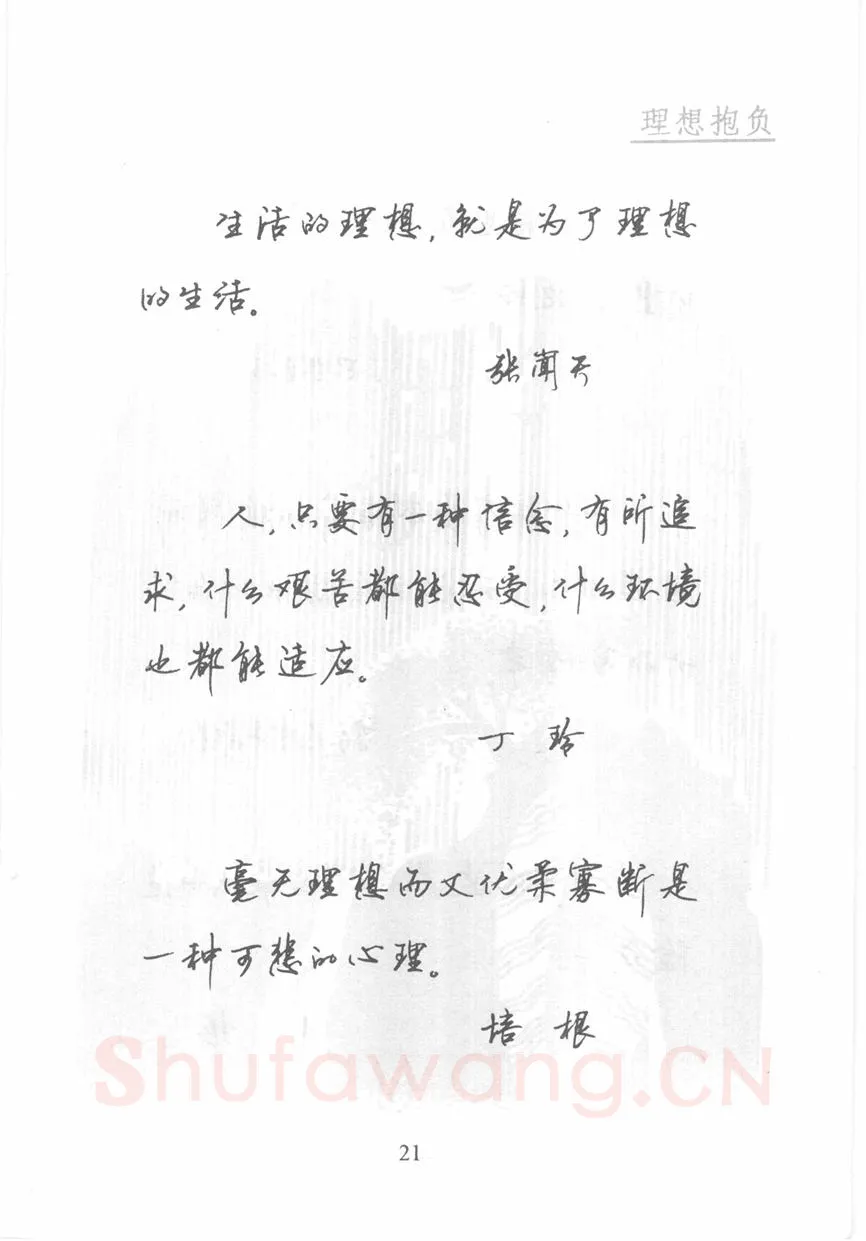 理想抱负
生活的理想,就是为了理想
的生活。
张闻天
人,只要有一种信念,有所追
求,什么艰苦都能忍受,什么环境
也都能适应。
丁 玲
毫无理想而又优柔寡断是
一种可悲的心理。
培 根
Shufawang.CN
21